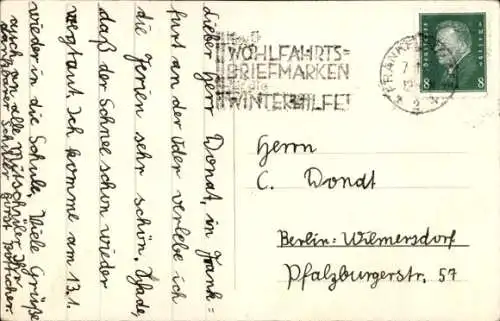 lieber Herr Donat, in Frank=
furt an der Oder verlebe ich
die Ferien sehr schön. Schade,
daß der Schnee schon wieder
weggtaut. Ich komme am 13.1.
wieder in die Schule. Viele Grüße
auch an alle Mitschüler Ihr
dankbarer Schüler Horst
WOHLFAHRTS=
BRIEFMARKEN
WINTERHILFE!
FRANKFURT
8 8
Herrn
C. Dondt
Berlin-Wilmersdorf
Pfalzburgerstr. 57